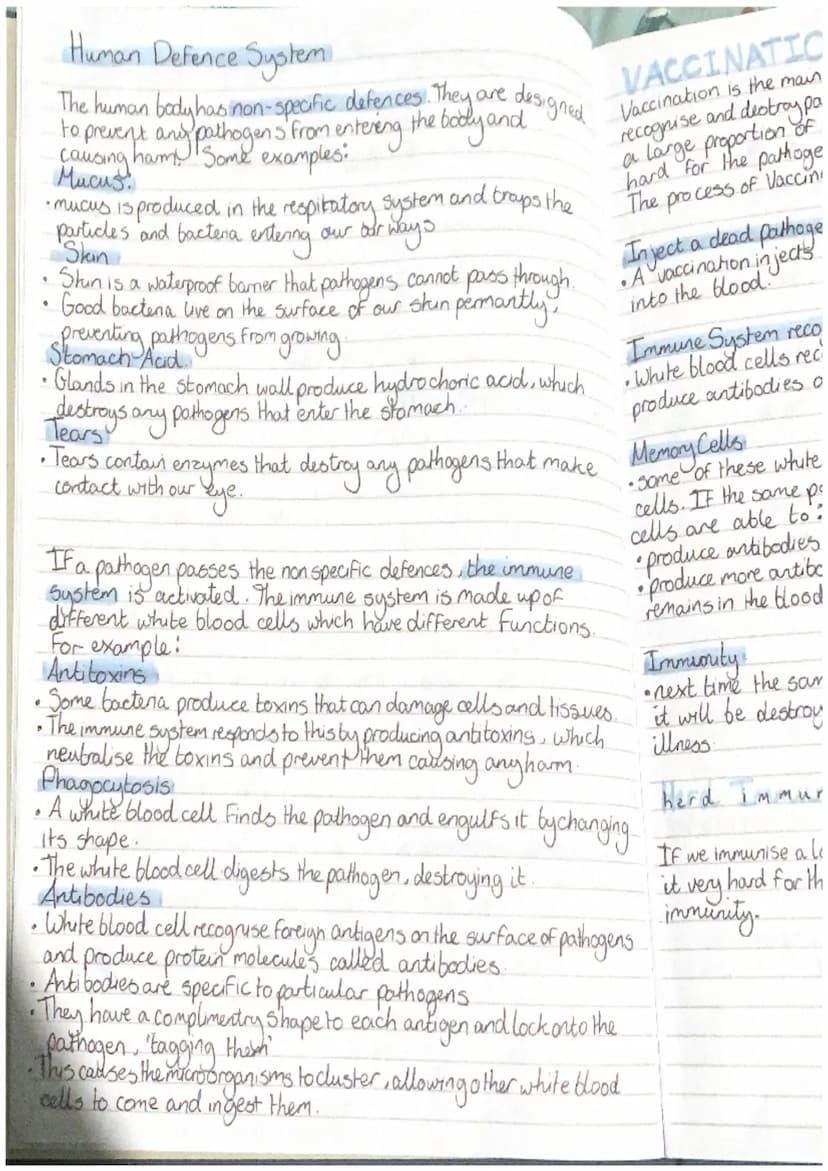 Human Defence System
The human body has non-specific defences. They are designed
to prevent any pathogens from entering the body and
causing harm. Some examples:
Mucus:
• mucus is produced in the respiratory system and traps the
particles and bacteria entering our air ways
Skin
• Skin is a waterproof barrier that pathogens cannot pass through.
• Good bacteria live on the surface of our skin permantly,
preventing pathogens from growing.
Stomach-Acid
• Glands in the stomach wall produce hydrochoric acid, which
destroys any pathogens that enter the stomach.
Tears
• Tears contain enzymes that destroy any pathogens that make
contact with our eye.
If a pathogen passes the non specific defences, the immune
system is activated. The immune system is made up of
different white blood cells which have different functions.
For example:
Antitoxins
• Some bacteria produce toxins that can damage cells and tissues.
• The immune system responds to this by producing antitoxins, which
neutralise the toxins and prevent them causing any harm.
Phagocytosis
• A white blood cell finds the pathogen and engulfs it by changing
its shape.
• The white blood cell digests the pathogen, destroying it.
Antibodies
• White blood cell recognise foreign antigens on the surface of pathogens
and produce protein molecules called antibodies.
• Antibodies are specific to particular pathogens
• They have a complimentry shape to each antigen and lock onto the
pathogen, 'tagging them'
• This causes the microorganisms to cluster, allowing other white blood
cells to come and ingest them.
VACCINATIC
Vaccination is the main
recognise and destroy pa
a large proportion of
hard for the pathoge
The process of Vaccin
Inject a dead pathoge
• A vaccination injects
into the blood.
Immune System reco
• White blood cells rec
produce antibodies o
Memory Cells
• some of these white
cells. If the same pa
cells are able to:
• produce antibodies
• produce more antibo
remains in the blood
Immunity
• next time the sam
it will be destroy
illness
herd immur
If we immunise a la
it very hard for th
immunity.